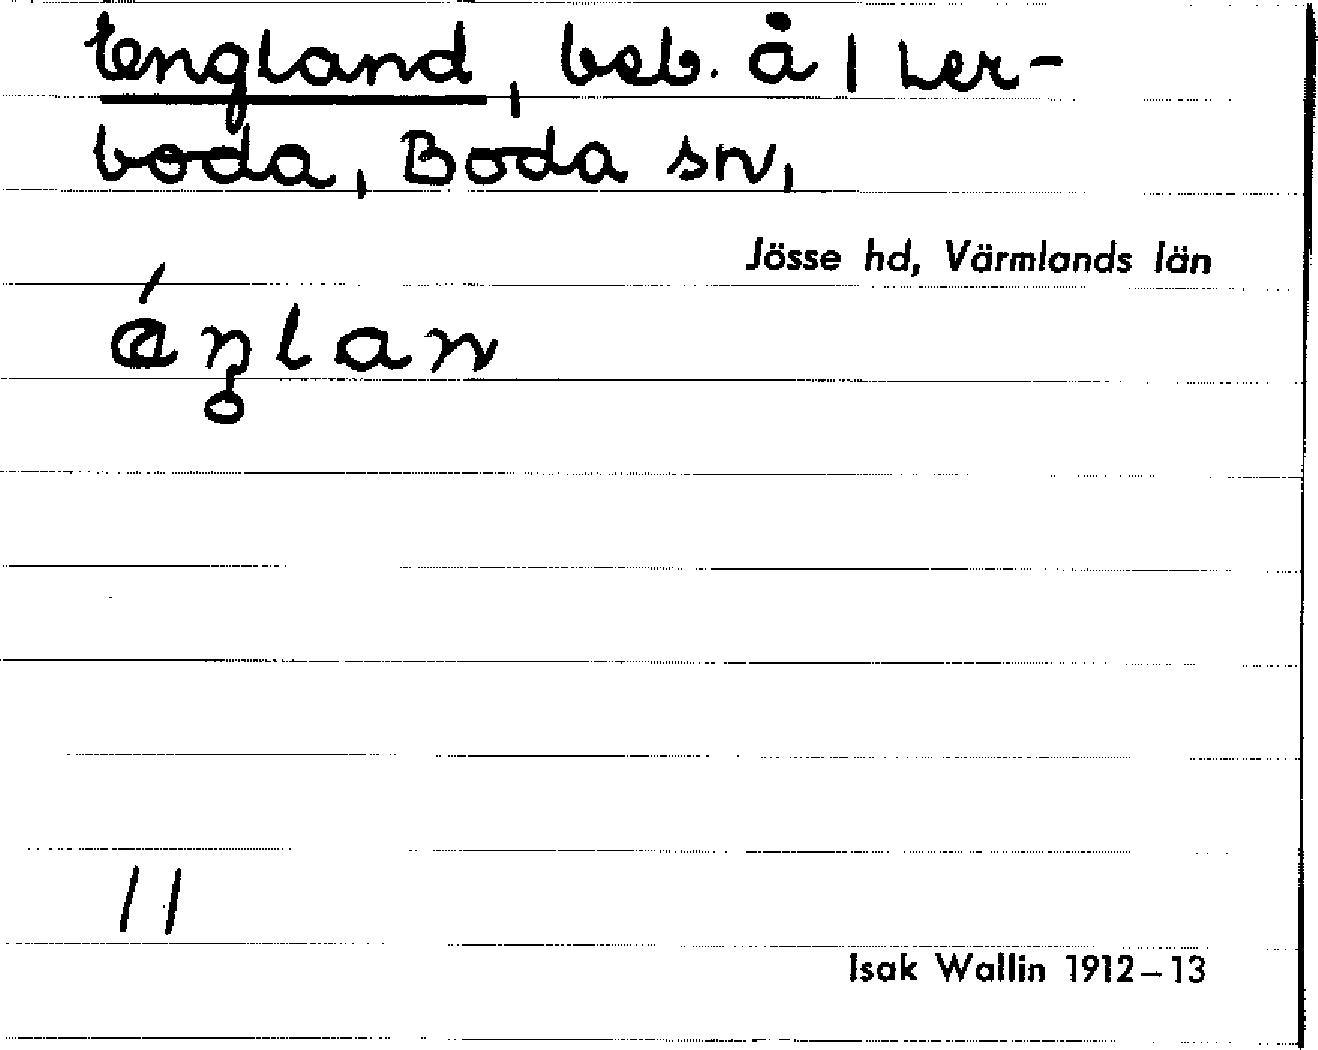 England, beb. å 1 Ler-
boda, Boda sn,
Jösse hd, Värmlands län
11
Isak Wallin 1912–13